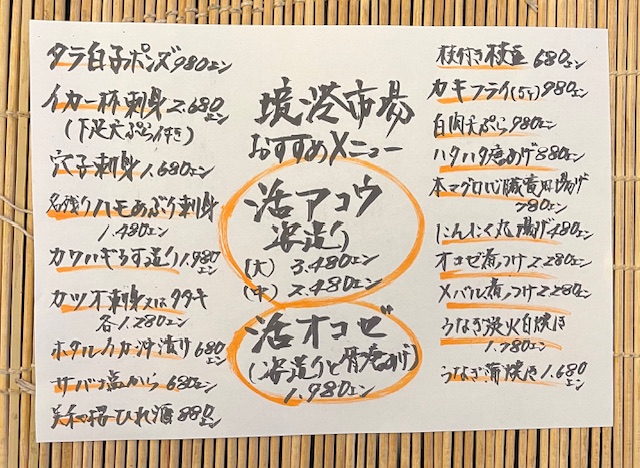 タラ白子ポンズ980エン
イカ一杯刺身2.680エン
(下足天ぷら付き)
穴子刺身1.680エン
名残りハモあぶり刺身
1.480エン
カワハギうす造り1.980エン
カツオ刺身又はタタキ
各1.280エン
ホタルイカ沖漬け680エン
サバ塩から680エン
ひれ酒880エン
境港市場
おすすめメニュー
活アコウ
姿造り
(大) 3.480エン
(中) 2.480エン
活オコゼ
(姿造りと骨唐あげ)
1.980エン
枝付き枝豆680エン
カキフライ(5ケ)980エン
白肉天ぷら980エン
ハタハタ唐あげ880エン
本マグロ心臓竜田揚げ
780エン
にんにく丸揚げ480エン
オコゼ煮つけ2.280エン
メバル煮つけ2.280エン
うなぎ炭火白焼き
1.780エン
うなぎ蒲焼き1.680エン